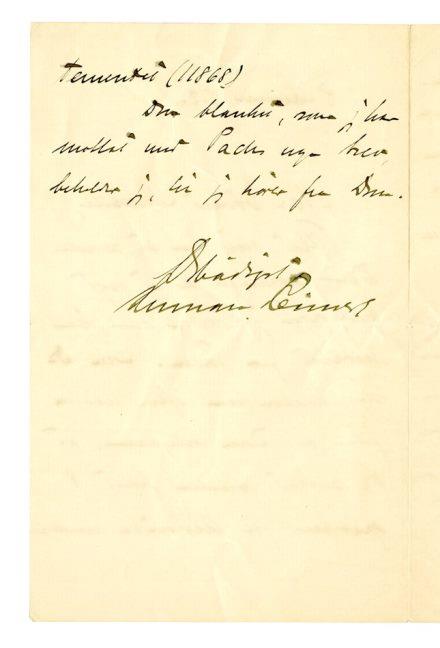 tementet (11868)
Den blanket, som jeg har
mottat med Pachs nye brev,
beholder jeg, til jeg hører fra Dem.
Ærbødigst
Herman Reimers